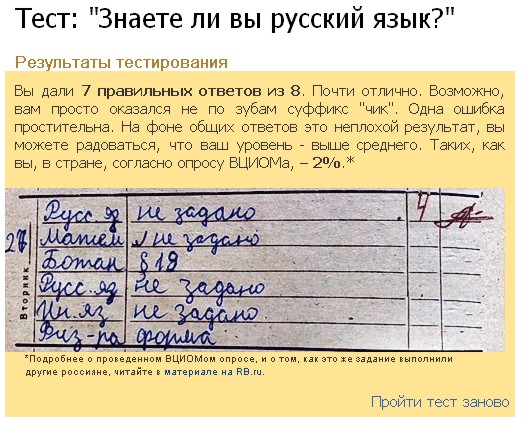 Тест: "Знаете ли вы русский язык?"
Результаты тестирования
Вы дали 7 правильных ответов из 8. Почти отлично. Возможно,
вам просто оказался не по зубам суффикс "чик". Одна ошибка
простительна. На фоне общих ответов это неплохой результат, вы
можете радоваться, что ваш уровень - выше среднего. Таких, как
вы, в стране, согласно опросу ВЦИОМа, – 2%.*
Русс. яз не задано 4
Матем не задано
Ботан § 18
Русс. яз не задано
Ин. яз. не задано
Физ-ра форма
Вторник 27
*Подробнее о проведенном ВЦИОМом опросе, и о том, как это же задание выполнили
другие россияне, читайте в материале на RB.ru.
Пройти тест заново